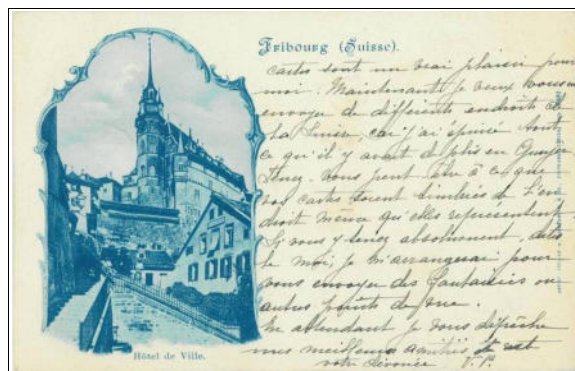 Fribourg (Suisse).
cartes sont un vrai plaisir pour
moi. Maintenant je veux vous en
envoyer de différents endroits de
la Suisse, car j'ai épuisé tout
ce qu'il y avait de plis en Gruyère
Tenez-vous peut être à ce que
vos cartes soient timbrées de l'en
droit même qu'elles représentent.
Si vous y tenez absolument, dites
le moi, je m'arrangerai pour
vous envoyer des fantaisies ou
autres points de vue.
En attendant je vous dépêche
mes meilleures amitiés et
votre dévouée V. P.
Hôtel de Ville.